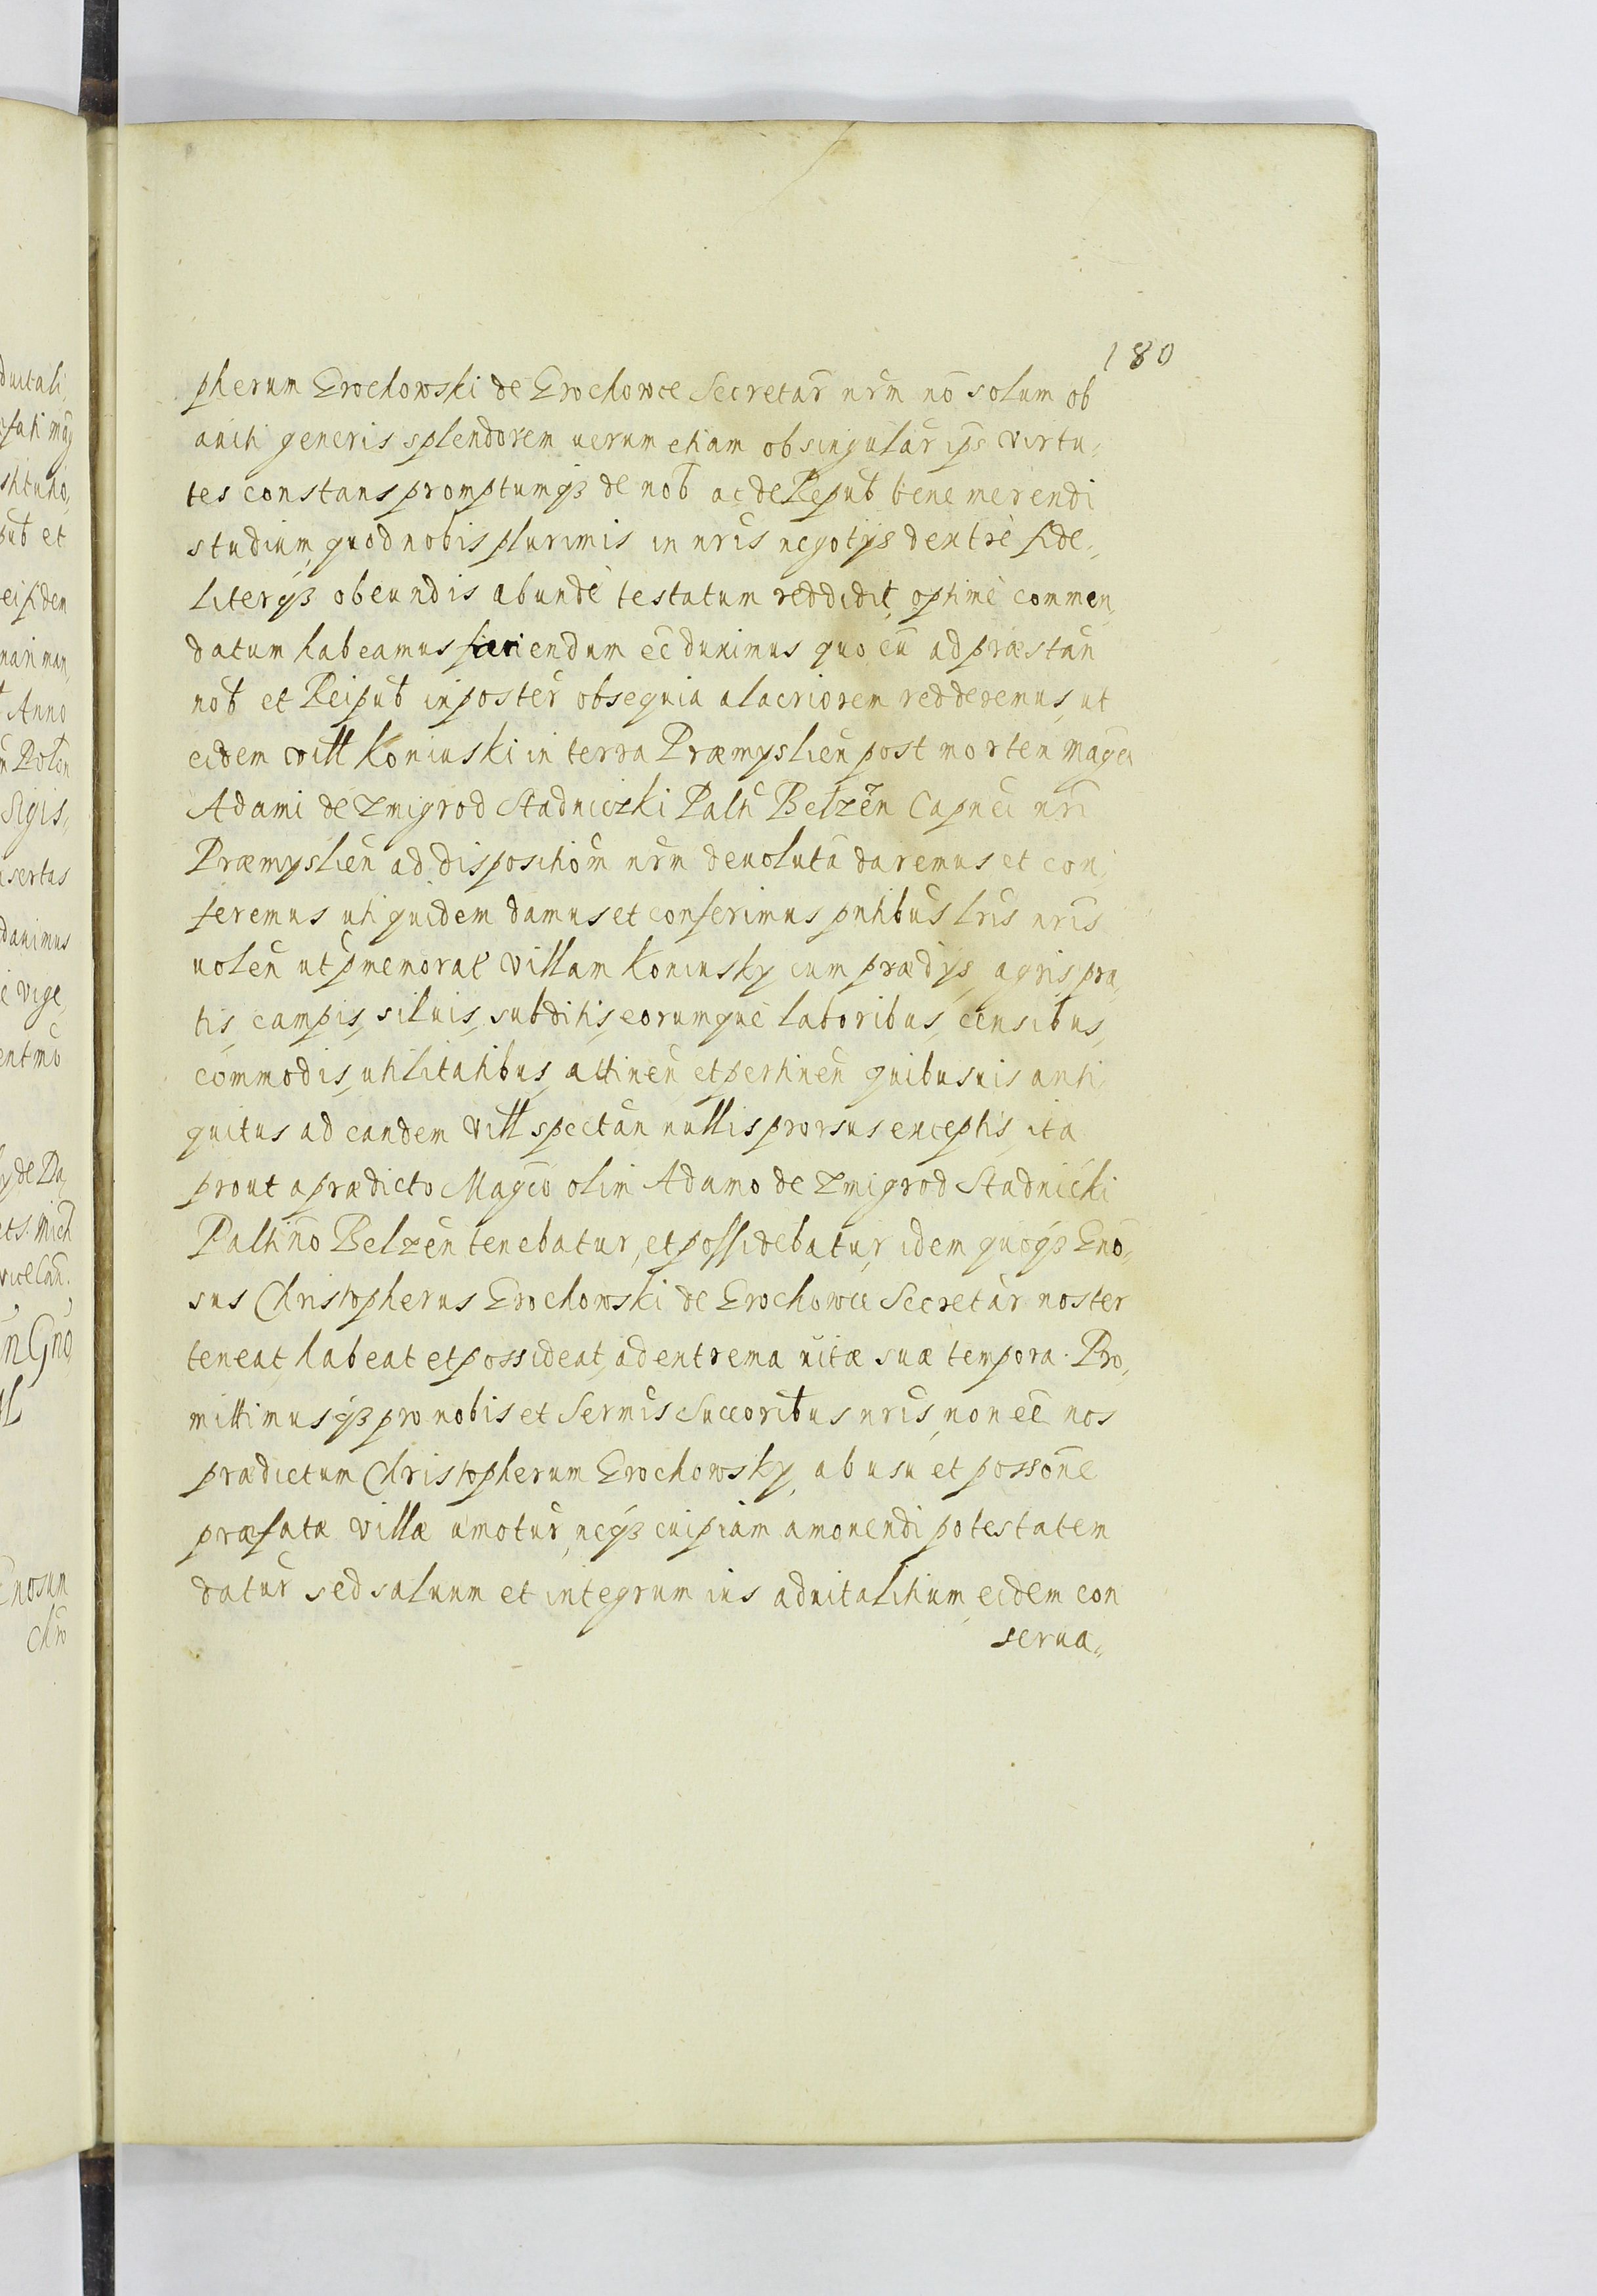 180
pherum Grochowski de Grochowce Secretar̄ nr̄m nō solum ob
auiti generis splendorem uerum etiam ob singular̄ ips̄ virtu,
tes constans promptumq3 de nob̄ ac de Repub̄ bene merendi
studium, quod nobis plurimis in nr̄is negotys dextrè fide,,
literq3 obeundis abundè testatum reddidit, optimè commen,
datum habeamus faciendum eē duximus quo eū ad præstan̄
nob̄ et Reipub̄ in poster̄ obsequia alacriorem redderemus, ut
eidem vill Koniuski in terra Præmyslien̄ post mortem Magc̄i
Adami de Zmigrod Stadniczki Paln̄ Belzēn Capnei nr̄i
Præmyslien̄ ad dispositiōm nr̄m deuolutā daremus et con,
feremus uti quidem damus et conferimus pn̄tibus lr̄is nr̄is
uolen̄ ut pmemorat̄ Villam Koniusky cum prædys, agris, pra,
tis, campis, siluis, subditis, eorumquè laboribus, censibus,
commodis, utilitatibus, attinen̄ et pertinen̄ quibusuis anti,
quitus ad eandem Vill spectan̄ nullis prorsus exceptis, ita
prout a prædicto Magc̄o olim Adamo de Zmigrod Stadnicki
Paltin̄o Belzēn tenebatur, et possidebatur, idem quoq3 Gnō,
sus Christopherus Grochowski de Grochowce Secretar̄ noster
teneat, habeat et possideat, ad extrema uitæ suæ tempora. Pro,,
mittimusq3 pro nobis et Serm̄is Succoribus nr̄is, non eē nos
prædictum Christopherum Grochowsky, ab usu et possōne
præfatæ villæ amotur̄, neq3 cuipiam amouendi potestatem
datur̄ sed saluum et integrum ius aduitalitium, eidem con
serua,,